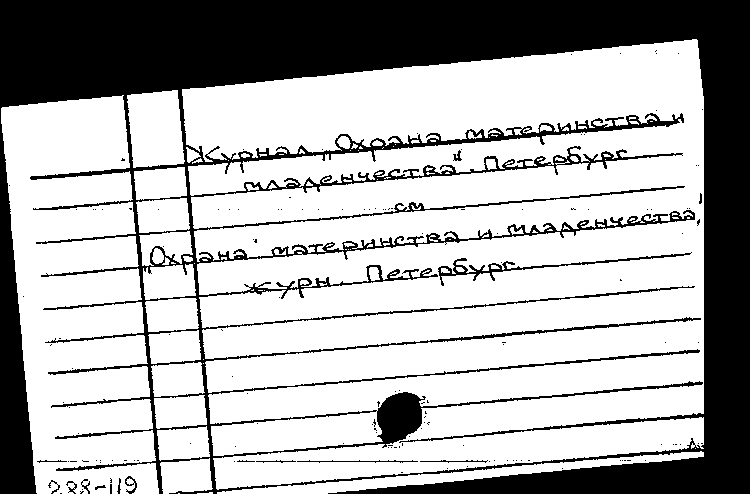 Журнал „Охрана материнства и
младенчества". Петербург
см
„Охрана материнства и младенчества,"
журн. Петербург.
288-119